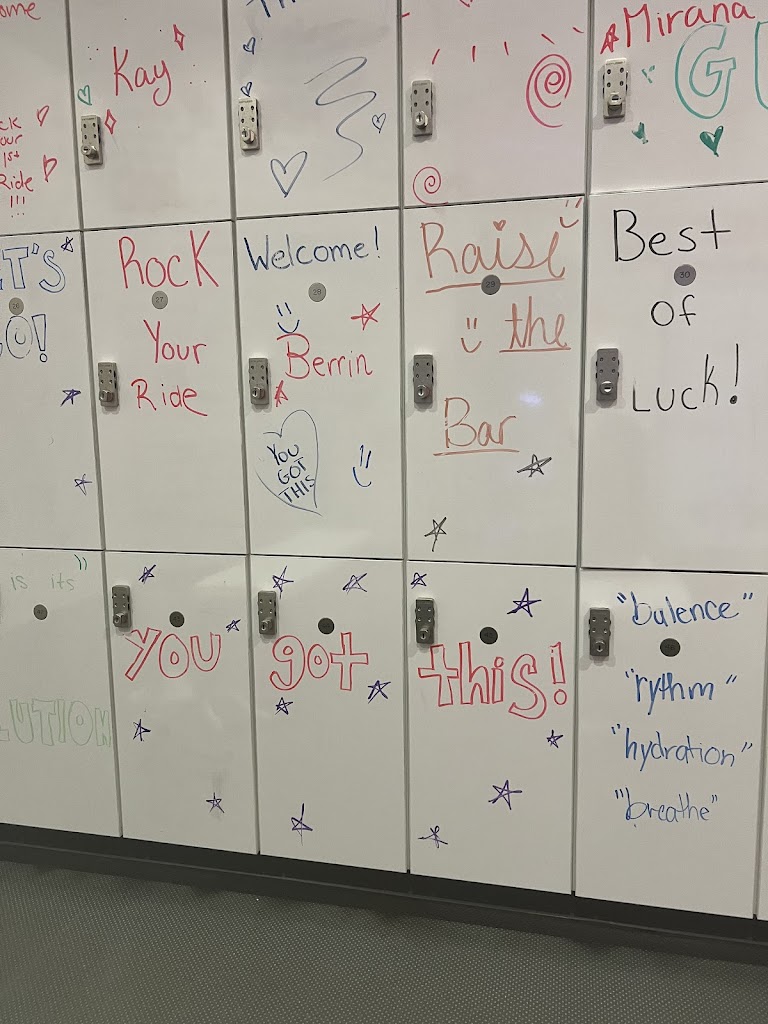 Kay
Mirana
Your
1st
Ride
!!!
Rock
Your
Ride
27
Welcome!
28
Berrin
YOU
GOT
THIS
Raise
29
the
Bar
Best
30
of
Luck!
is its
YOU
got
this!
"balence"
"rythm"
"hydration"
"breathe"